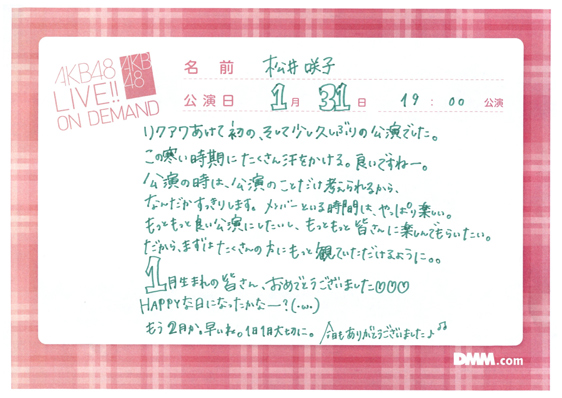 AKB48
LIVE!!
ON DEMAND
AKB
48
名前 松井咲子
公演日 1月 31日 19:00 公演
リクアワあけて初の、そして少し久しぶりの公演でした。
この寒い時期にたくさん汗をかける。良いですねー。
公演の時は、公演のことだけ考えられるから、
なんだかすっきりします。メンバーといる時間は、やっぱり楽しい。
もっともっと良い公演にしたいし、もっともっと皆さんに楽しんでもらいたい。
だから、まずはたくさんの方にもっと観ていただけるように。。
1月生まれの皆さん、おめでとうございました♡♡♡
HAPPYな日になったかなー?(・ω・)
もう2月か。早いね。1日1日大切に。 今日もありがとうございました♪
DMM.com